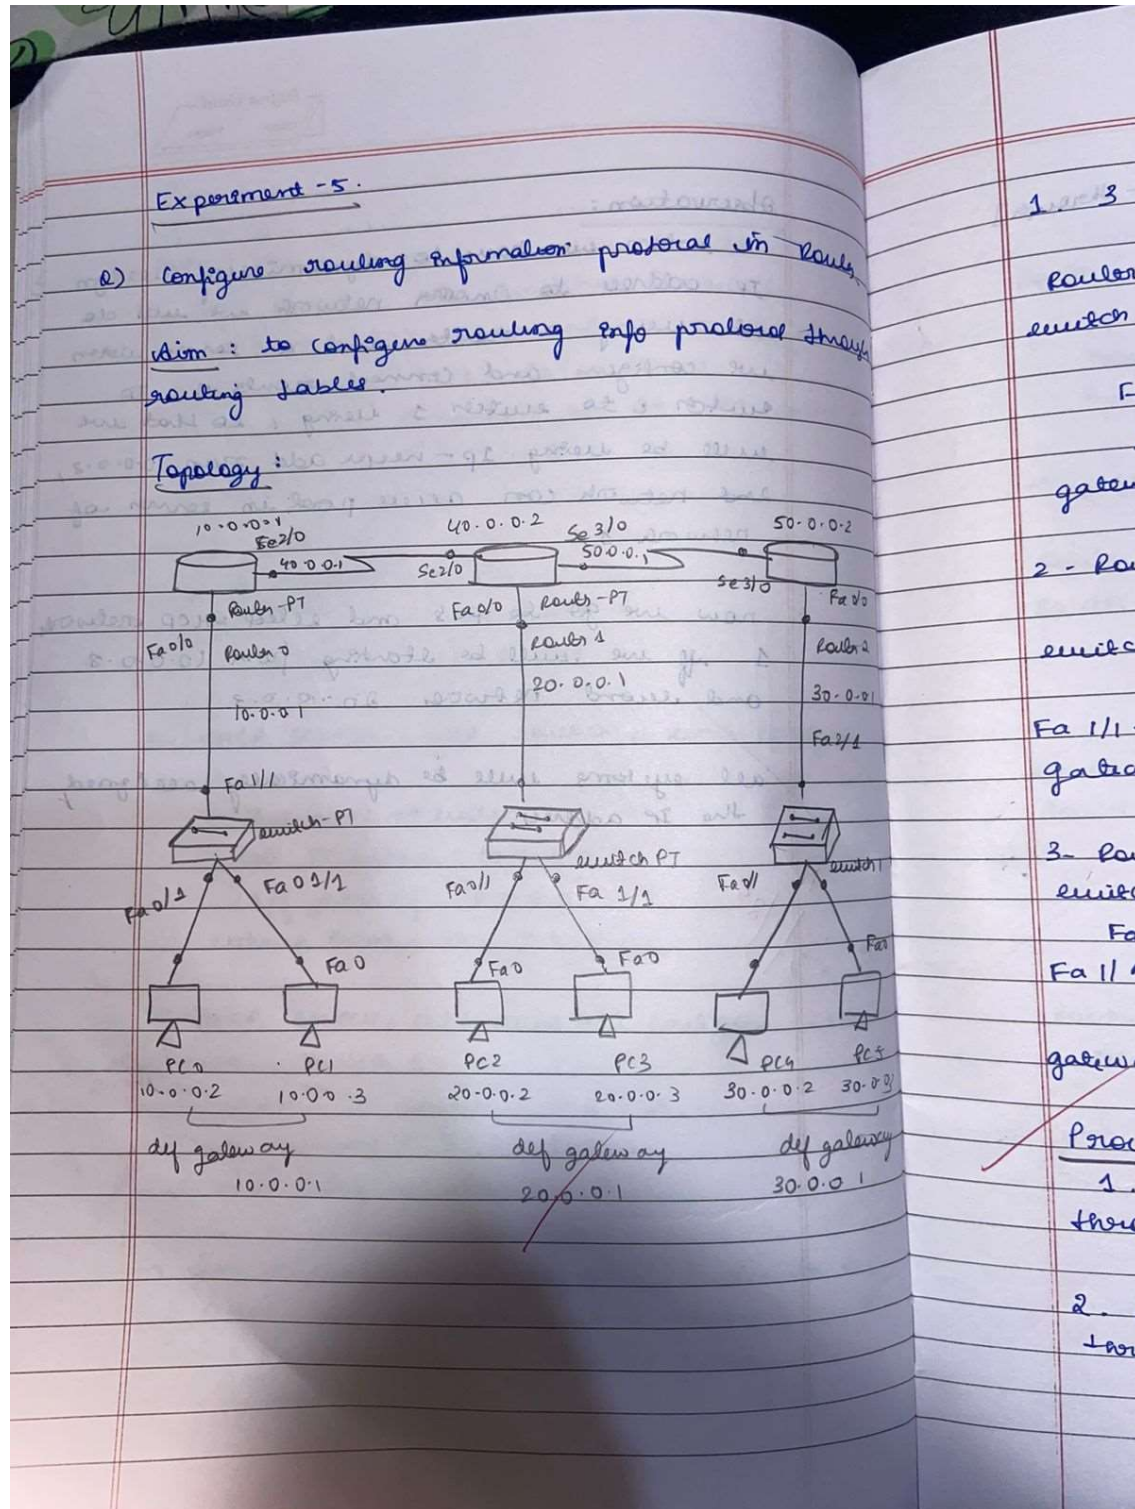 Experiment - 5.
Q) Configure routing information protocol in Router
Aim : to configure routing info protocol through
routing tables.
Topology :
10.0.0.1
40.0.0.2
50.0.0.2
Se2/0
Se 3/0
40.0.0.1
50.0.0.1
Se2/0
Se 3/0
Router-PT
Fa0/0
Router-PT
Fa0/0
Fa0/0
Router 0
Router 1
Router 2
10.0.0.1
20.0.0.1
30.0.01
Fa2/1
Fa1/1
switch-PT
switch PT
switch
Fa0/1
Fa0 1/1
Fa0/1
Fa 1/1
Fa0/1
Fa0
Fa0
Fa0
Fa0
PC0
PC1
PC2
PC3
PC4
PC5
10.0.0.2
10.00.3
20.0.0.2
20.0.0.3
30.0.0.2
30.0.03
def gateway
def gateway
def gateway
10.0.0.1
20.0.0.1
30.0.0 1
1. 3
Router
switch
F
gatew
2 - Rou
switc
Fa 1/1
gatew
3- Rou
switc
Fa
Fa 1/
gatew
Proc
1.
thro
2.
thr